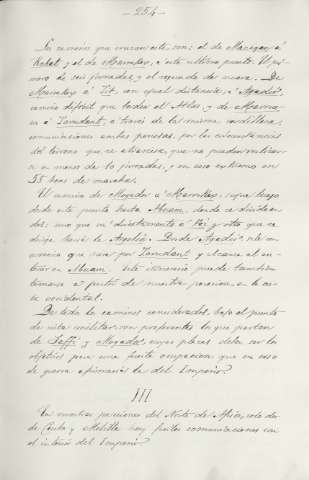 -254-
Los caminos que cruzan este, son: el de Mazagan á
Rabat y el de Marrakex, á este último punto. El pri
mero de seis jornadas y el segundo de nueve. De
Marrakex á Tit, con igual distancia, á Agadir,
camino difícil que bordea el Atlas, y de Marra
kex á Tarudant, á través de la misma cordillera;
comunicaciones ambas penosas, por las circunstancias
del terreno que se atraviesa, que no pueden verificar
se en menos de 10 jornadas, y en caso extremo en
55 horas de marcha.
El camino de Mogador á Marrakex, sigue luego
desde este punto hasta donde se divide en
dos: uno que va directamente á Fez y otro que se
dirige hacia la Argelia. Desde Agadir, sale un
camino que pasa por Tarudant y alcanza al an
terior en este itinerario puede tambien
tomarse á partir de nuestra posesion en la cos
ta occidental.
De todos los caminos considerados, bajo el punto
de vista militar son preferentes los que parten
de Saffi y Mogador, cuyas plazas deben ser los
objetivos para una pronta ocupacion que en caso
de guerra del Imperio?
III
En nuestras posesiones del Norte de Africa, solo des
de Ceuta y Melilla hay fáciles comunicaciones con
el interior del Imperio?